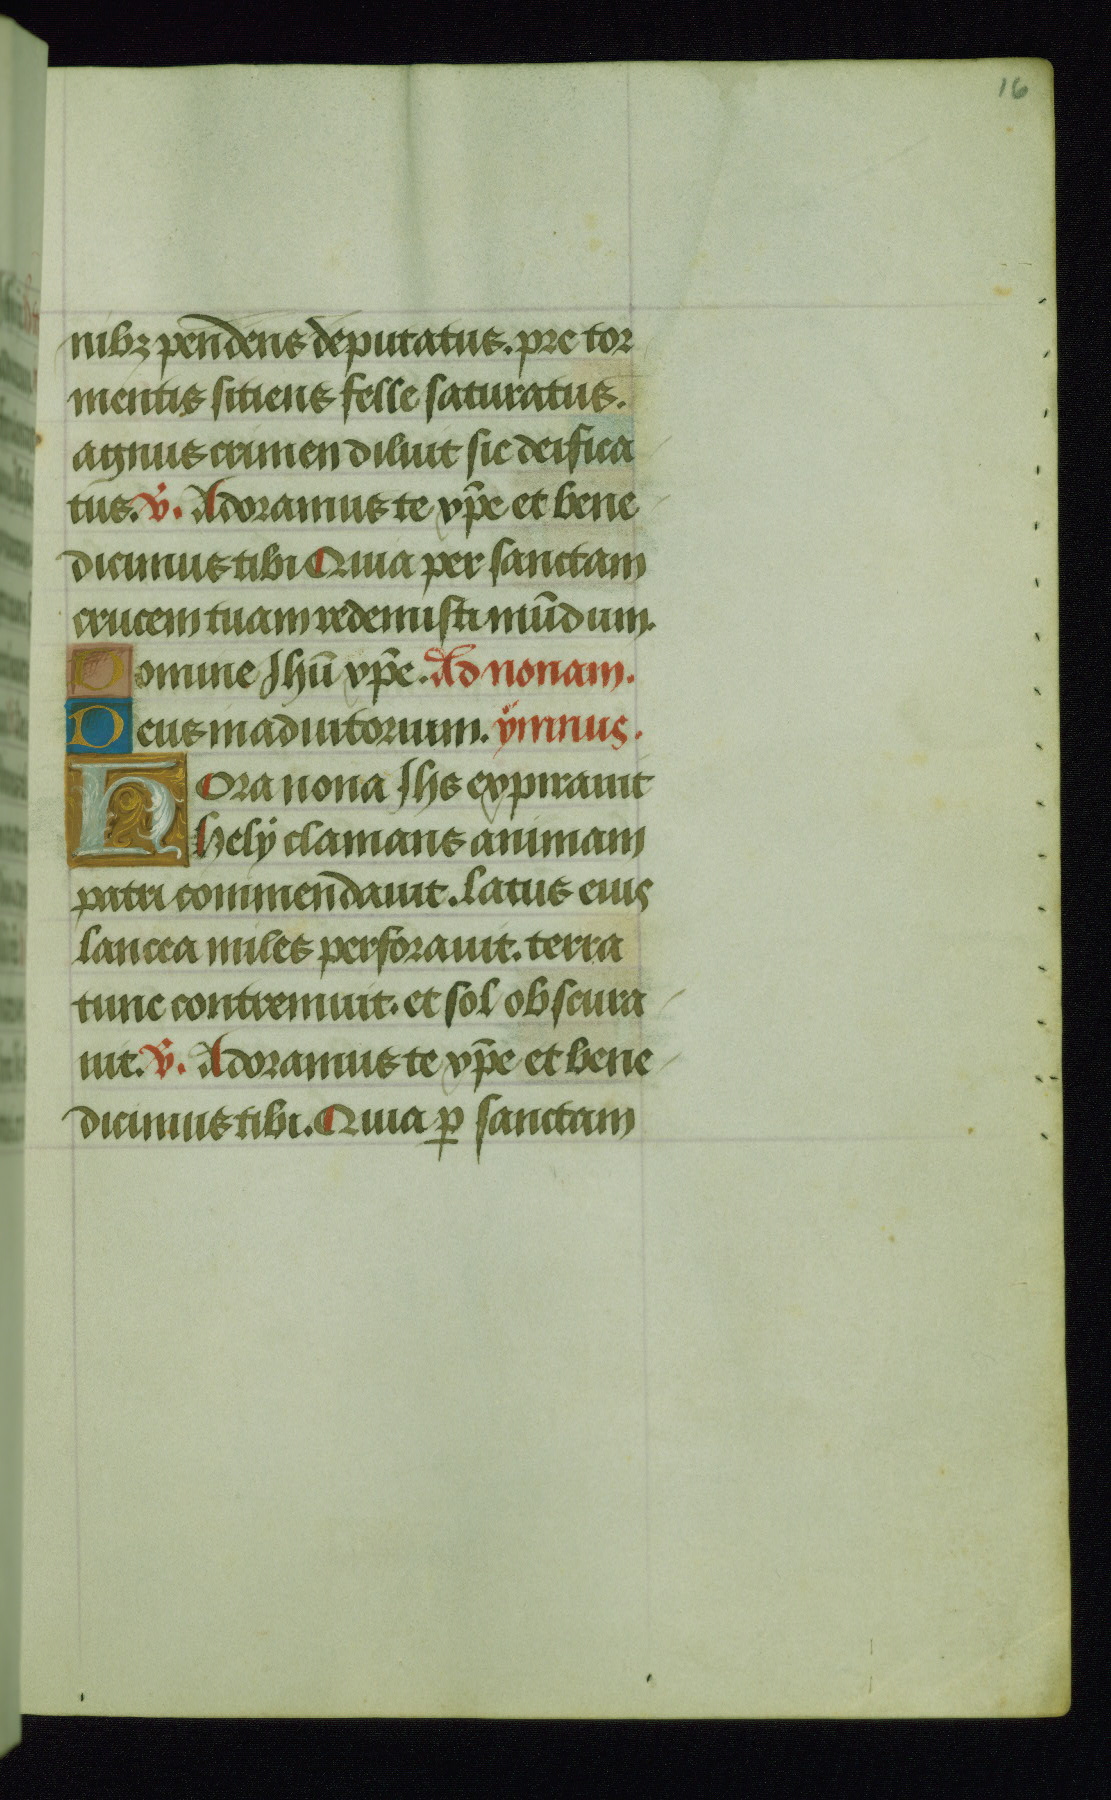 16
nibꝫ pendens deputatus. pre tor
mentis sitiens felle saturatus.
agnus crimen diluit sic deifica
tus. v̄. Adoramus te xp̄e et bene
dicimus tibi Quia per sanctam
crucem tuam redemisti mūdum.
Domine Jhū xp̄e. Ad nonam.
Deus in adiutorium. ÿmnus.
Hora nona Jhs expirauit
helÿ clamans animam
patri commendauit. latus eius
lancea miles perforauit. terra
tunc contremuit. et sol obscura
uit. v̄. Adoramus te xp̄e et bene
dicimus tibi. Quia ꝑ sanctam